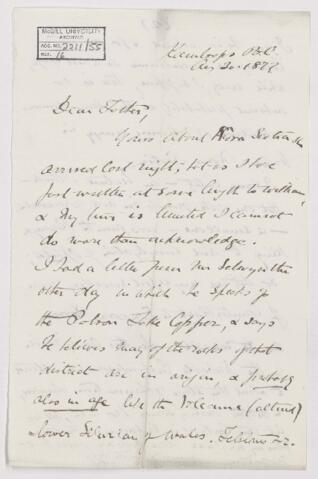 McGILL UNIVERSITY
ARCHIVES
ACC. NO. 2211/55
REF. 16
Kamloops B.C.
Aug 20. 1877
Dear Father,
Yours about Nova Scotia &c
arrived last night, but as I have
just written at some length to William,
& my time is limited I cannot
do more than acknowledge.
I had a letter from Mr Selwyn the
other day in which he speaks of
the Polson Lake Copper, & says
he believes many of the rocks of that
district are in origin, & probably
also in age like the Volcanic (altered)
lower Silurian of Wales.